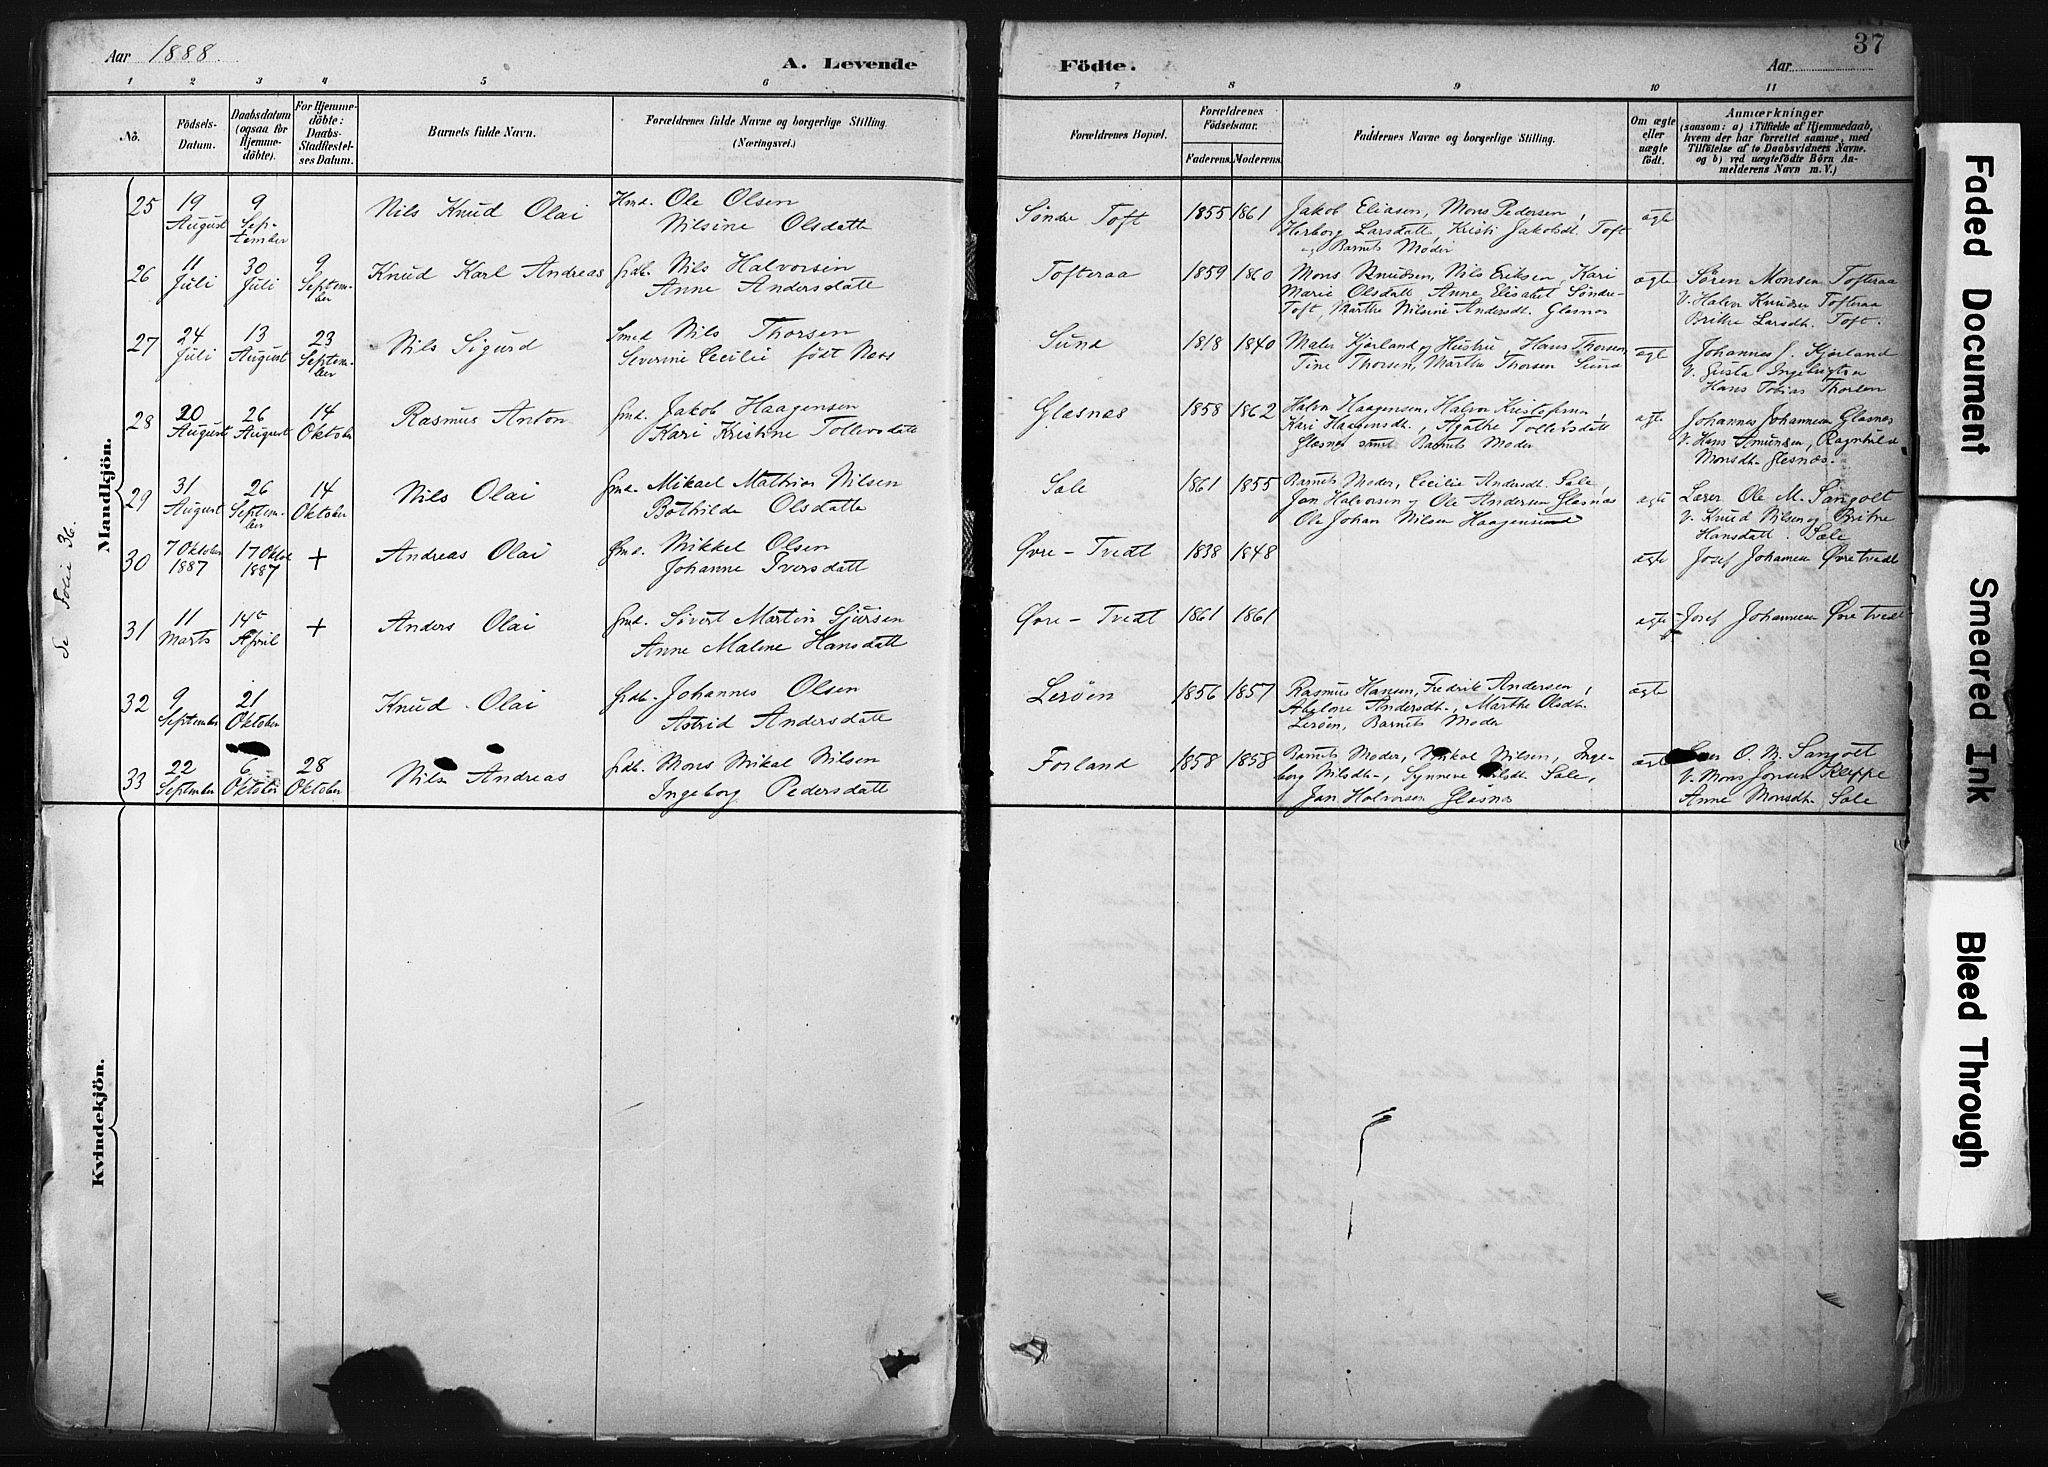 Aar 1888.
A. Levende
Födte.
37
Aar
1 2 3 4 5 6 7 8 9 10 11
No.
Födsels-
Datum.
Daabsdatum
(ogsaa for
Hjemme-
döbte).
For Hjemme-
döbte:
Daabs-
Stadfæstel-
ses Datum.
Barnets fulde Navn.
Forældrenes fulde Navne og borgerlige Stilling.
(Næringsvei.)
Forældrenes Bopæl.
Forældrenes
Födselsaar.
Faderens. Moderens.
Faddernes Navne og borgerlige Stilling.
Om ægte
eller
uægte
födt.
Anmærkninger
(saasom: a) i Tilfælde af Hjemmedaab,
hvem der har forrettet samme, med
Tilföielse af to Daabsvidners Navne.
og b) ved uægtefödte Börn An-
melderens Navn m. V.)
Mandkjön.
Se Folie 36.
25 19 August 9 Sep-tember Nils Knud Olai Gmd. Ole Olsen
Nilsine Olsdatter
Søndre Toft 1855 1861 Jakob Eliasen, Mons Pedersen,
Herborg Larsdatt Kristi Jakobdt. Toft
og Barnets Moder
ægte
26 11 Juli 30 Juli 9 Septem-ber Knud Karl Andreas Grdb. Nils Halvorsen
Anne Andersdatt
Tofteraa 1859 1860 Mons Knudsen, Nils Eriksen, Kari
Marie Olsdatt Anne Elisabet Søndre-
Toft, Marthe Nilsine Andersdt. Glasnes
ægte Søren Monsen Tofteraa
V. Halvor Knudsen Tofteraa
Brithe Larsdt. Toft.
27 24 Juli 13 August 23 Septem-ber Nils Sigurd Smed Nils Thorsen
Severine Cecilie født Næss
Sund 1818 1840 Maler Kjørland og Hustru, Hans Thorsen,
Tine Thorsen, Marthe Thorsen Sund
ægte Johannes J. Kjørland
V. Gusta Ingebrigtsen
Hans Tobias Thorsen
28 20 August 26 August 14 Oktober Rasmus Anton Gmd. Jakob Haagensen
Kari Kristine Tollevsdatt
Glesnes 1858 1862 Halvor Haagensen, Halvor Kristofersen,
Kari Haagensdt., Agathe Tollevsdatt
Glesnes samt Barnets Moder
ægte Johannes Johannesen Glasnes
V. Hans Amundsen, Ragnhild
Monsdt. Glesnæs.
29 31 August 26 Septem-ber 14 Oktober Nils Olai Gmd. Mikael Mathias Nilsen
Bothilde Olsdatter
Sale 1861 1855 Barnets Moder, Cecilie Andersdt. Sale,
Jan Halvorsen og Ole Andersen Glasnæs
Ole Johan Nilsen Haagensund
ægte Lærer Ole M. Sangolt
V. Knud Nilsen og Brithe
Hansdatt. Sale
30 7 Oktober 1887 17 Oktob 1887 + Andreas Olai Gmd. Mikkel Olsen
Johanne Iversdatt
Øvre-Tvedt 1838 1848 ægte Josef Johannesen Øvretvedt
31 11 Marts 14 April + Anders Olai Gmd. Sivert Martin Sjursen
Anne Malene Hansdatt
Øvre-Tvedt 1861 1861 ægte Josef Johannesen Øvretvedt
32 9 September 21 Oktober Knud Olai Grdb. Johannes Olsen
Astrid Andersdatt
Lerøen 1856 1857 Rasmus Hansen, Fredrik Andersen,
Abelone Andersdt., Marthe Olsdt.
Lerøen, Barnets Moder
ægte
33 22 September 6 Oktober 28 Oktober Nils Andreas Grdb. Mons Mikal Nilsen
Ingeborg Pedersdatt
Forland 1858 1858 Barnets Moder, Mikal Nilsen, Inge-
borg Nilsdt., Synneve Nilsdt. Sale,
Jan Halvorsen Glasnes
ægte O. M. Sangolt
V. Mons Jonsen Kleppe
Anne Monsdt. Sale
Kvindekjön.
Faded Document
Smeared Ink
Bleed Through